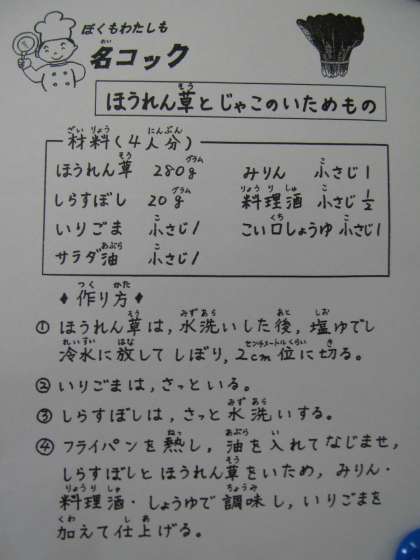 ぼくもわたしも
名コック
ほうれん草とじゃこのいためもの
材料(4人分)
ほうれん草 280g みりん 小さじ1
しらすぼし 20g 料理酒 小さじ1/2
いりごま 小さじ1 こい口しょうゆ 小さじ1
サラダ油 小さじ1
♦作り方♦
① ほうれん草は,水洗いした後,塩ゆでし
冷水に放してしぼり,2cm位に切る。
② いりごまは,さっといる。
③ しらすぼしは,さっと水洗いする。
④ フライパンを熱し,油を入れてなじませ,
しらすぼしとほうれん草をいため,みりん・
料理酒・しょうゆで調味し,いりごまを
加えて仕上げる。